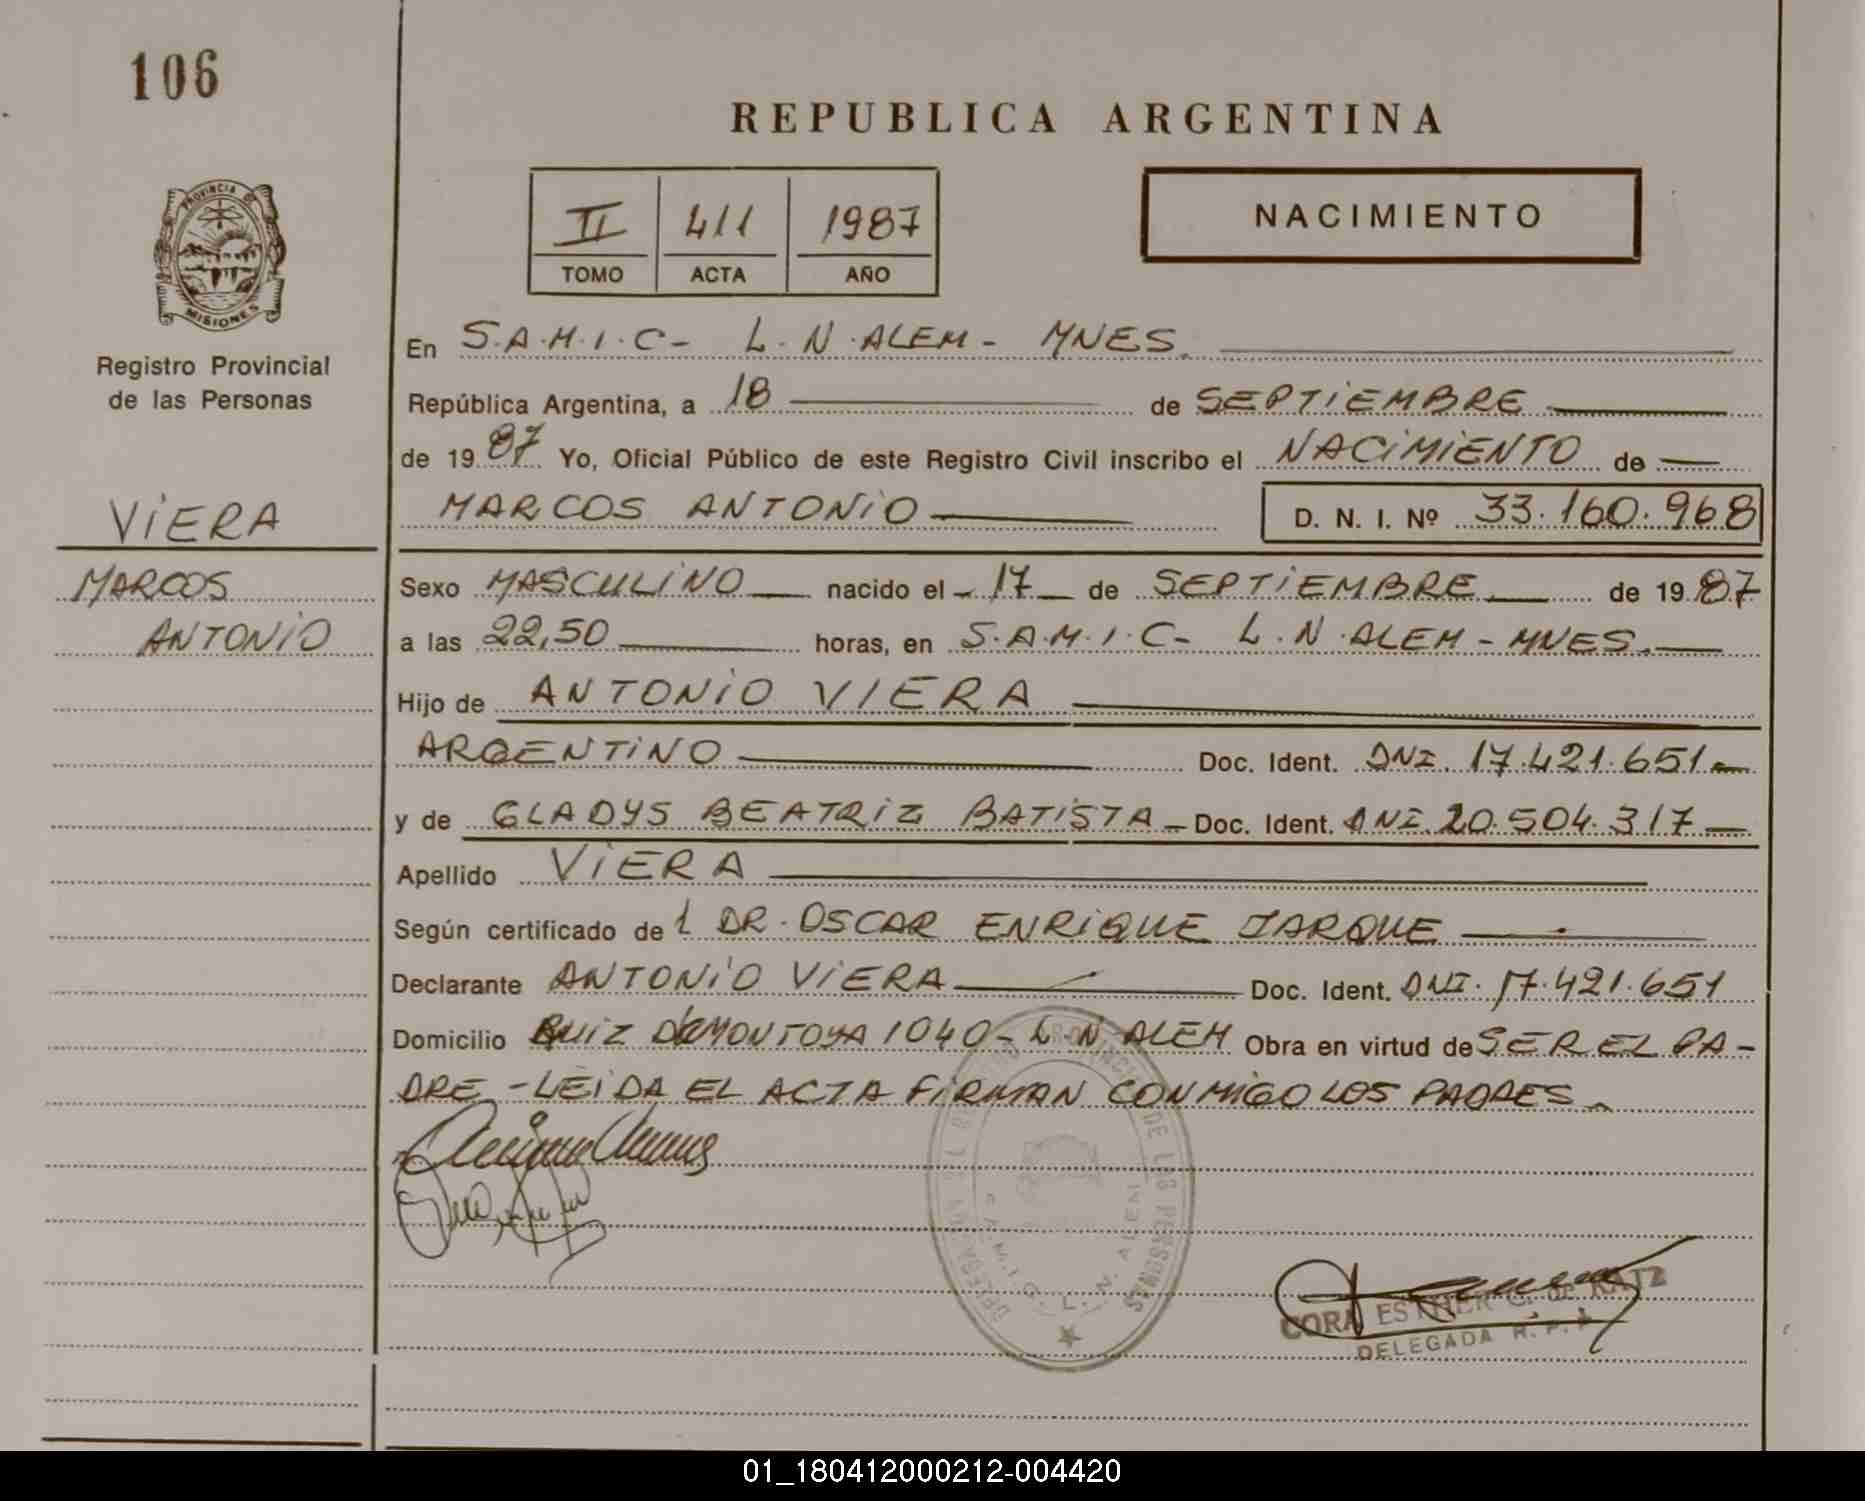 106
REPUBLICA ARGENTINA
II 411 1987
TOMO ACTA AÑO
NACIMIENTO
PROVINCIA DE
MISIONES
Registro Provincial
de las Personas
VIERA
MARCOS
ANTONIO
En S.A.M.I.C- L.N.ALEM- MNES.
República Argentina, a 18 de SEPTIEMBRE
de 1987 Yo, Oficial Público de este Registro Civil inscribo el NACIMIENTO de
MARCOS ANTONIO D. N. I. Nº 33.160.968
Sexo MASCULINO nacido el 17 de SEPTIEMBRE de 1987
a las 22,50 horas, en S.A.M.I.C- L.N.ALEM-MNES.
Hijo de ANTONIO VIERA
ARGENTINO Doc. Ident. DNI. 17.421.651-
y de GLADYS BEATRIZ BATISTA - Doc. Ident. DNI. 20.504.317-
Apellido VIERA
Según certificado de l DR. OSCAR ENRIQUE JARQUE
Declarante ANTONIO VIERA Doc. Ident. DNI. 17.421.651
Domicilio RUIZ D MONTOYA 1040- L.N ALEM Obra en virtud de SER EL PA-
DRE -LEIDA EL ACTA FIRMAN CONMIGO LOS PADRES
DE LAS PERSONAS
L. N. ALEM
CORA ESTHER C. de RATZ
DELEGADA R. P. P.
01_180412000212-004420